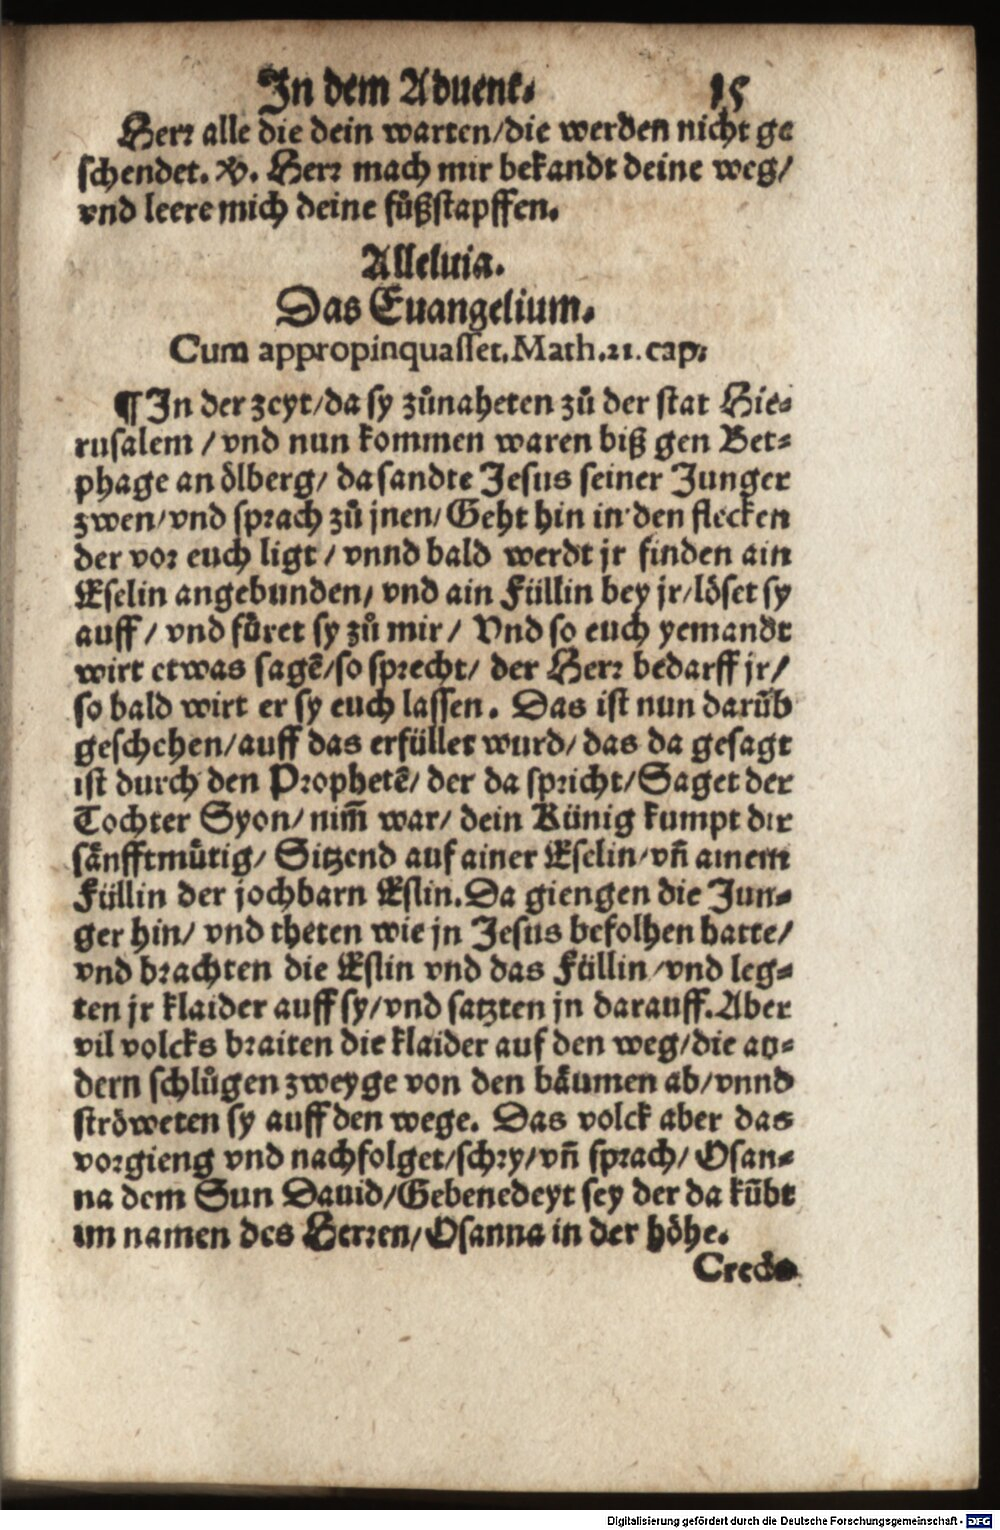 In dem Aduent. 15
Herr alle die dein warten/die werden nicht ge
schendet. V. Herr mach mir bekandt deine weg/
vnd leere mich deine fůßstapffen.
Alleluia.
Das Euangelium.
Cum appropinquasset. Math. 21. cap.
¶ In der zeyt/da sy zůnaheten zů der stat Hie-
rusalem / vnd nun kommen waren biß gen Bet-
phage an ölberg/ da sandte Jesus seiner Junger
zwen/vnd sprach zů jnen/ Geht hin in den flecken
der vor euch ligt / vnnd bald werdt jr finden ain
Eselin angebunden/ vnd ain Füllin bey jr/löset sy
auff / vnd fůret sy zů mir / Vnd so euch yemandt
wirt etwas sagē/so sprecht/ der Herr bedarff jr/
so bald wirt er sy euch lassen. Das ist nun darūb
geschehen/auff das erfüllet wurd/ das da gesagt
ist durch den Prophetē/ der da spricht/ Saget der
Tochter Syon/ nim̄ war/ dein Künig kumpt dir
sänfftmůtig/ Sitzend auf ainer Eselin/vñ ainem
Füllin der jochbarn Eslin. Da giengen die Jun-
ger hin/ vnd theten wie jn Jesus befolhen hatte/
vnd brachten die Eslin vnd das Füllin/vnd leg-
ten jr klaider auff sy/vnd satzten jn darauff. Aber
vil volcks braiten die klaider auf den weg/die an-
dern schlůgen zweyge von den bäumen ab/vnnd
ströweten sy auff den wege. Das volck aber das
vorgieng vnd nachfolget/schry/vñ sprach/ Osan-
na dem Sun Dauid/Gebenedeyt sey der da kūbt
im namen des Herren/Osanna in der höhe.
Credo
Digitalisierung gefördert durch die Deutsche Forschungsgemeinschaft - DFG